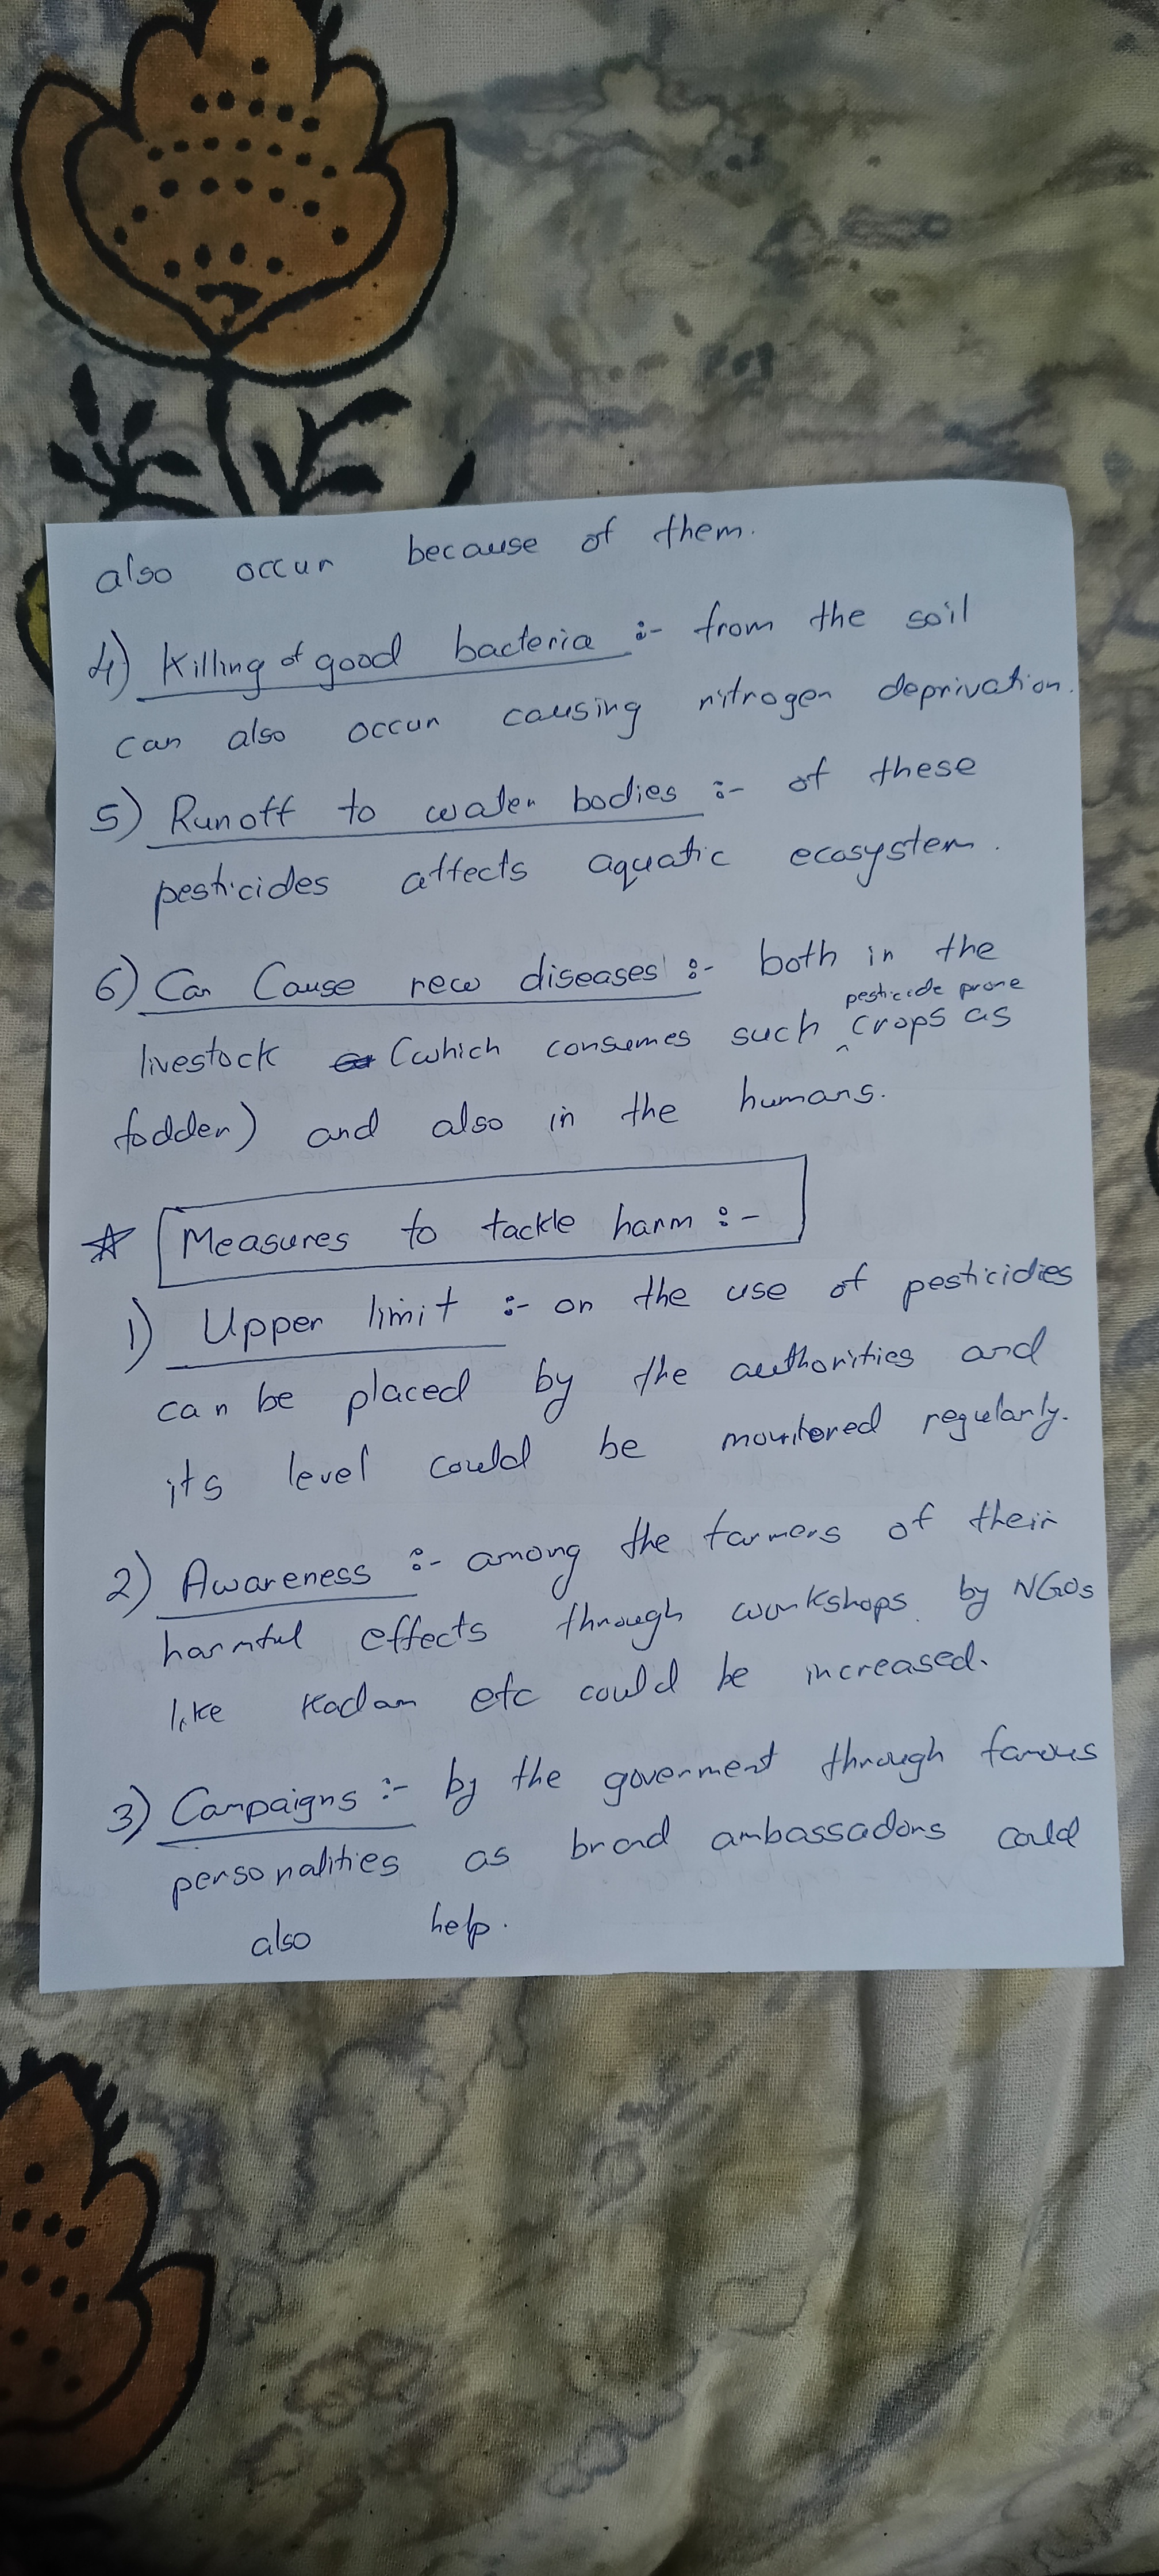 also occur because of them.
4) Killing of good bacteria :- from the soil
can also occur causing nitrogen deprivation.
5) Runoff to water bodies :- of these
pesticides affects aquatic ecosystem.
6) Can Cause new diseases :- both in the
pesticide prone
livestock (which consumes such crops as
fodder) and also in the humans.
☆ Measures to tackle harm :-
1) Upper limit :- on the use of pesticidies
can be placed by the authorities and
its level could be monitored regularly.
2) Awareness :- among the farmers of their
harmful effects through workshops by NGOs
like Kadam etc could be increased.
3) Campaigns :- by the goverment through famous
personalities as brand ambassadors could
also help.